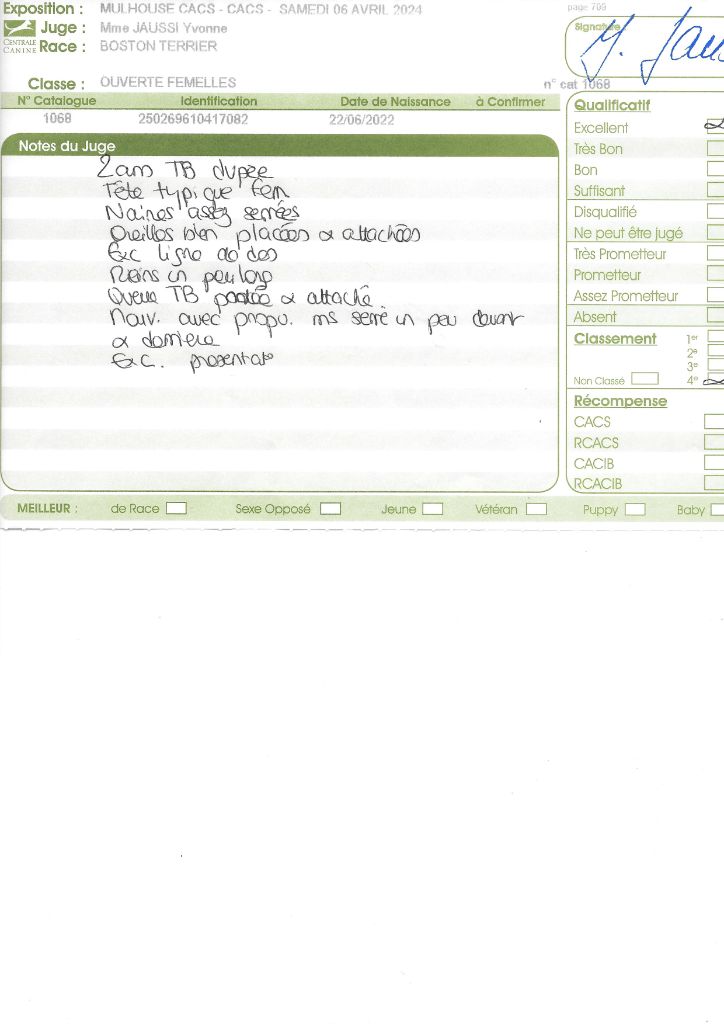 Exposition : MULHOUSE CACS - CACS - SAMEDI 06 AVRIL 2024
page 709
Juge : Mme JAUSSI Yvonne
Signature
CENTRALE CANINE
Race : BOSTON TERRIER
Classe : OUVERTE FEMELLES
n° cat 1068
N° Catalogue Identification Date de Naissance à Confirmer
1068 250269610417082 22/06/2022
Notes du Juge
2 ans TB
Tête typique fem
Narines assez serrées
Oreilles bien placées & attachées
Exc ligne de dos
Reins un peu long
Queue TB portée & attaché
Mouv. avec propu. ms serré un peu devant
& derrière
Exc.
Qualificatif
Excellent
Très Bon
Bon
Suffisant
Disqualifié
Ne peut être jugé
Très Prometteur
Prometteur
Assez Prometteur
Absent
Classement 1er
2e
3e
Non Classé 4e
Récompense
CACS
RCACS
CACIB
RCACIB
MEILLEUR : de Race Sexe Opposé Jeune Vétéran Puppy Baby